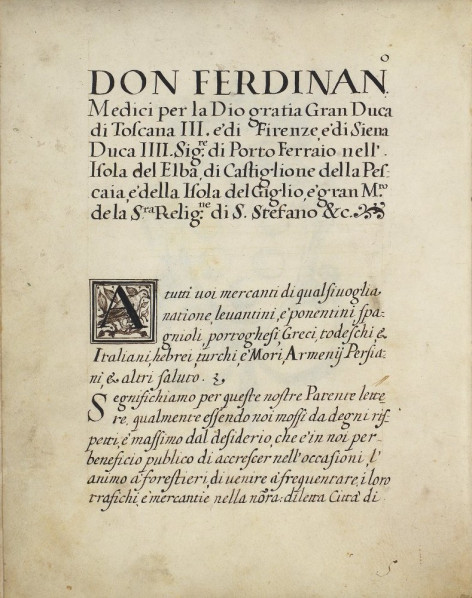 DON FERDINANO
Medici per la Dio gratia Gran Duca
di Toscana III. e di Firenze, e di Siena
Duca IIII. Sig.re di Porto Ferraio nell'
Isola del Elba, di Castiglione della Pes-
caia, e della Isola del Giglio, e gran M.ro
de la S.ra Relig.ne di S. Stefano &c.
A tutti uoi mercanti di qualsiuoglia
natione, leuantini, e ponentini, spa-
gnioli, portoghesi, Greci, todeschi, &
Italiani, hebrei, turchi, e Mori, Armenij, Persia-
ni, & altri saluto.
Segnifichiamo per queste nostre Patente lette
re, qualmente essendo noi mossi da degni ris-
petti, e massimo dal desiderio, che e in noi per
beneficio publico di accrescer nell'occasioni, l'
animo a forestieri, di uenire a frequentare, i loro
trafichi, e mercantie nella nora. diletta Citta di